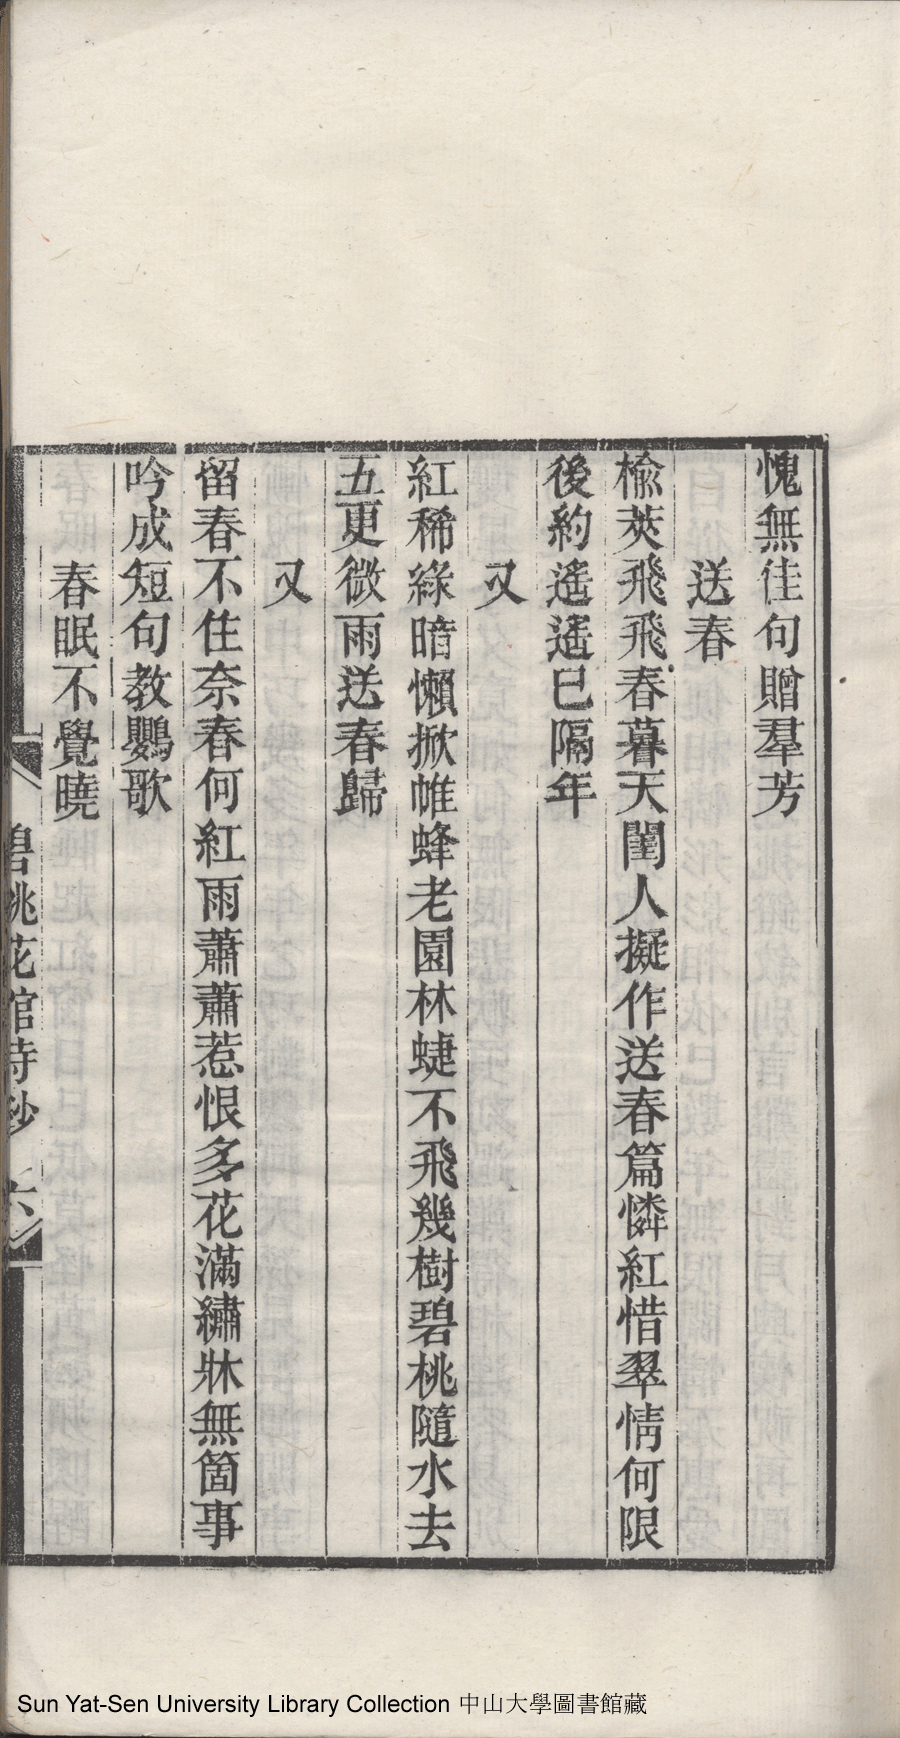 愧無佳句贈羣芳
送春
榆莢飛飛春暮天閨人擬作送春篇憐紅惜翠情何限
後約遙遙已隔年
又
紅稀綠暗懶掀帷蜂老園林蜨不飛幾樹碧桃隨水去
五更微雨送春歸
又
留春不住奈春何紅雨蕭蕭惹恨多花滿繡牀無箇事
吟成短句教鸚歌
春眠不覺曉
碧桃花館詩鈔
六
Sun Yat-Sen University Library Collection 中山大學圖書館藏